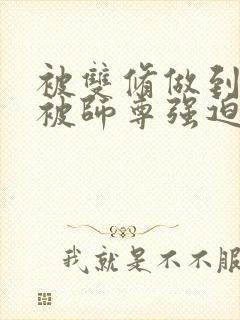 被雙脩做到
被師尊强迫
我就是不不服